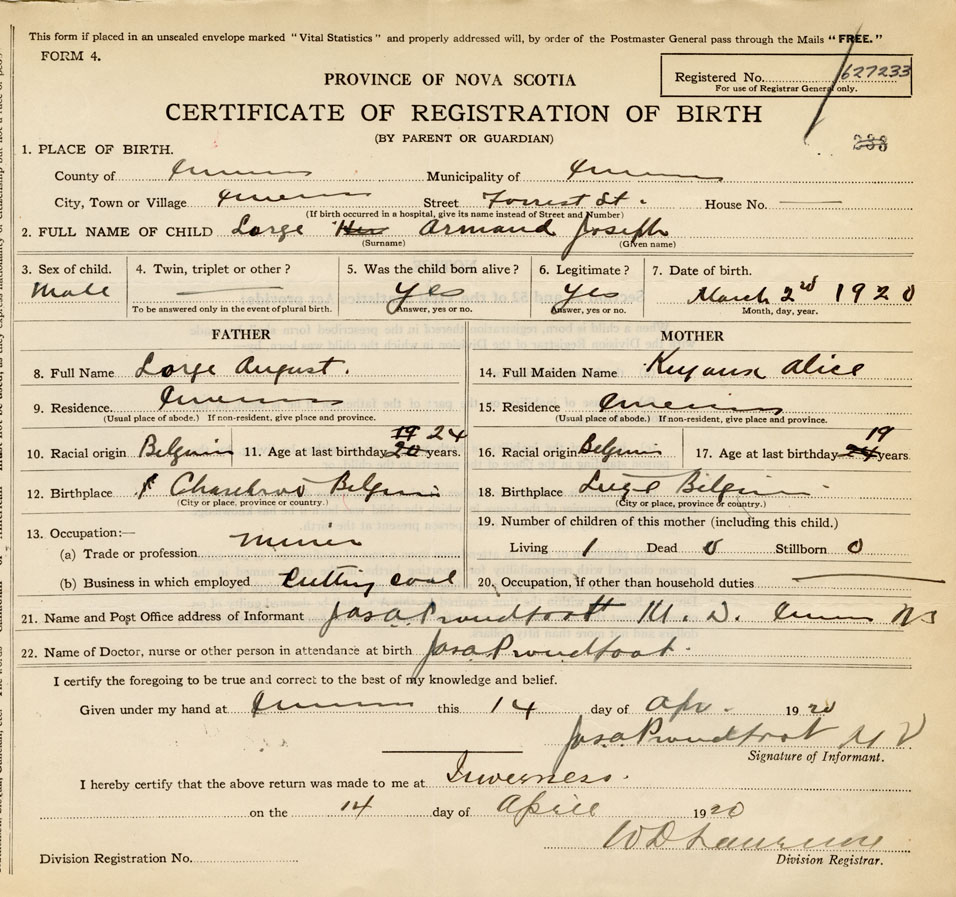 This form if placed in an unsealed envelope marked "Vital Statistics" and properly addressed will, by order of the Postmaster General pass through the Mails "FREE."
FORM 4.
Registered No. 627233
For use of Registrar General only.
PROVINCE OF NOVA SCOTIA
CERTIFICATE OF REGISTRATION OF BIRTH
(BY PARENT OR GUARDIAN)
1. PLACE OF BIRTH.
County of Inverness Municipality of Inverness
City, Town or Village Inverness Street Forrest St. House No.
(If birth occurred in a hospital, give its name instead of Street and Number)
2. FULL NAME OF CHILD Lorge Armand Joseph
(Surname) (Given name)
3. Sex of child. 4. Twin, triplet or other? 5. Was the child born alive? 6. Legitimate? 7. Date of birth.
Male Yes Yes March 2nd 1920
To be answered only in the event of plural birth. Answer, yes or no. Answer, yes or no. Month, day, year.
FATHER
8. Full Name Lorge August.
9. Residence. Inverness
(Usual place of abode.) If non-resident, give place and province.
19 24
10. Racial origin Belgium 11. Age at last birthday 20 years.
12. Birthplace Belgium
(City or place, province or country.)
13. Occupation:—
(a) Trade or profession miner
(b) Business in which employed Cutting coal
MOTHER
14. Full Maiden Name Alice
15. Residence Inverness
(Usual place of abode.) If non-resident, give place and province.
19
16. Racial origin Belgium 17. Age at last birthday years
18. Birthplace Belgium
(City or place, province or country.)
19. Number of children of this mother (including this child.)
Living 1 Dead 0 Stillborn 0
20. Occupation, if other than household duties
21. Name and Post Office address of Informant Jas A Proudfoot M.D. Inverness NS
22. Name of Doctor, nurse or other person in attendance at birth Jas A Proudfoot.
I certify the foregoing to be true and correct to the best of my knowledge and belief.
Given under my hand at Inverness this 14 day of Apr. 1920
Jas A Proudfoot M D
Signature of Informant.
I hereby certify that the above return was made to me at Inverness.
on the 14 day of April 1920
W D Lawrence
Division Registration No. Division Registrar.